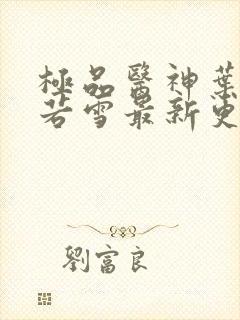 極品醫神葉
若雪最新更
劉富良